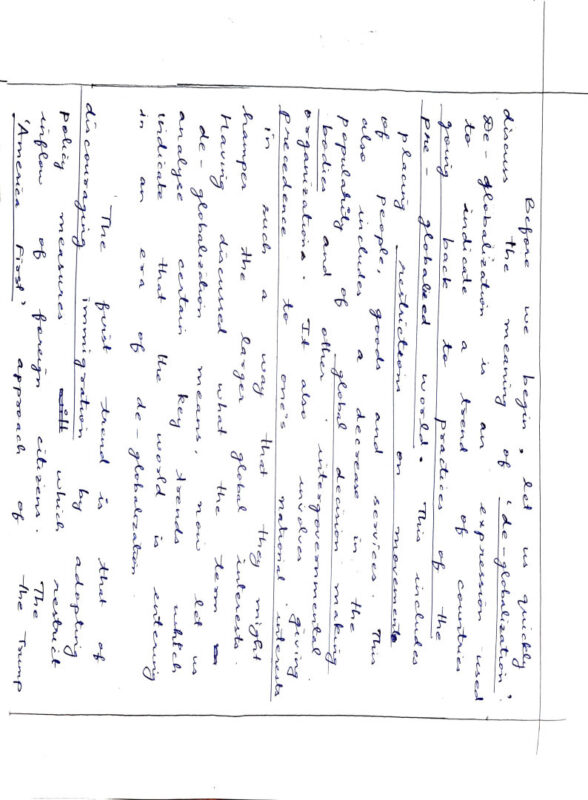 Before we begin, let us quickly
discuss the meaning of 'de-globalization'.
De-globalization is an expression used
to indicate a trend of countries
going back to practices of the
pre-globalized world. This includes
placing restrictions on movement
of people, goods and services. This
also includes a decrease in the
popularity of global decision making
bodies and other intergovernmental
organizations. It also involves giving
precedence to one's national interests
in such a way that they might
hamper the larger global interests.
Having discussed what the term
de-globalization means, now let us
analyse certain key trends which
indicate that the world is entering
in an era of de-globalization.
The first trend is that of
discouraging immigration by adopting
policy measures which restrict
inflow of foreign citizens. The
'America First' approach of the Trump